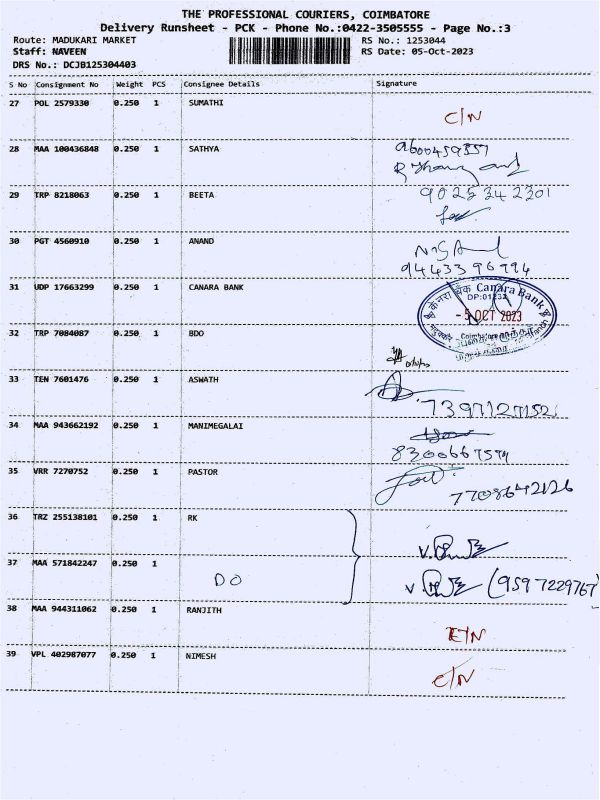 THE PROFESSIONAL COURIERS, COIMBATORE
Delivery Runsheet - PCK - Phone No.:0422-3505555 - Page No.:3
Route: MADUKARI MARKET RS No.: 1253044
Staff: NAVEEN RS Date: 05-Oct-2023
DRS No.: DCJB125304403
S No Consignment No Weight PCS Consignee Details Signature
27 POL 2579330 0.250 1 SUMATHI C/N
28 MAA 100436848 0.250 1 SATHYA
29 TRP 8218063 0.250 1 BEETA 9025342301
30 PGT 4560910 0.250 1 ANAND
9443396994
31 UDP 17663299 0.250 1 CANARA BANK
केनरा बैंक Canara Bank
DP:01232
-5 OCT 2023
Coimbatore
32 TRP 7084087 0.250 1 BDO
33 TEN 7601476 0.250 1 ASWATH
7397127152
34 MAA 943662192 0.250 1 MANIMEGALAI
8300667579
35 VRR 7270752 0.250 1 PASTOR
7708642126
36 TRZ 255138101 0.250 1 RK
37 MAA 571842247 0.250 1
DO (9597229767)
38 MAA 944311062 0.250 1 RANJITH
E/N
39 VPL 402987077 0.250 1 NIMESH
C/N